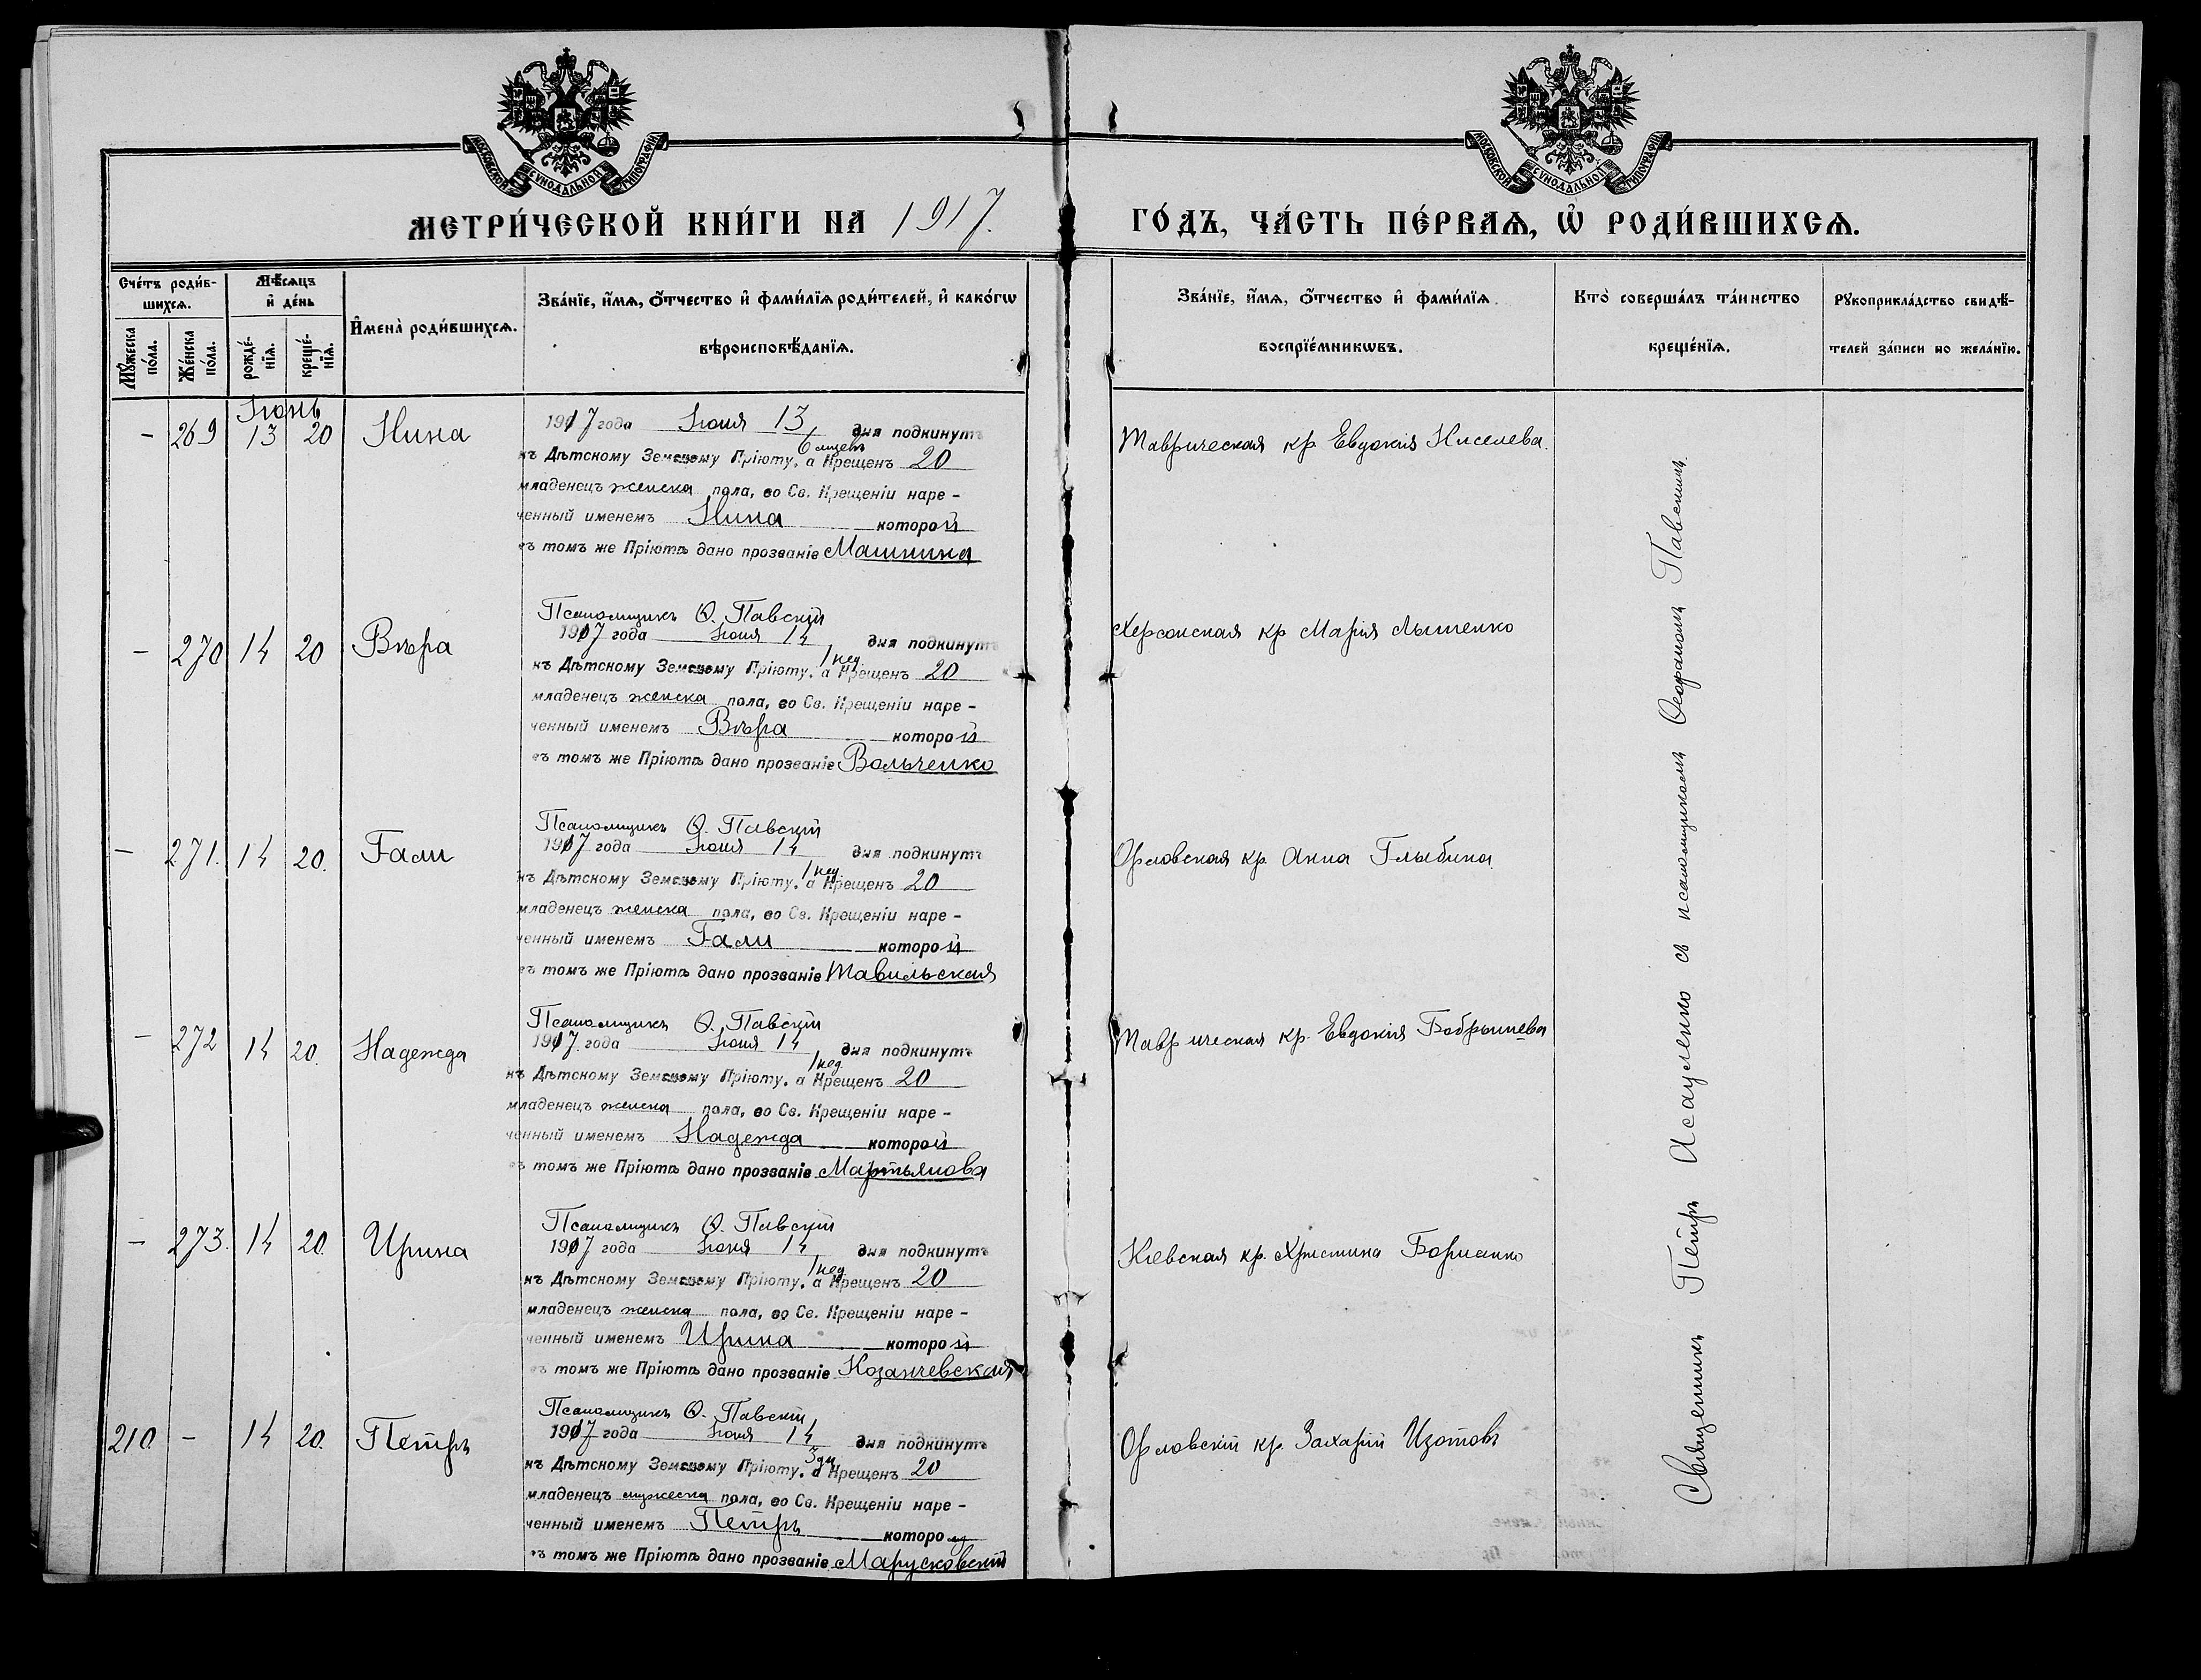 МОСКОВСКОЙ СѴНОДАЛЬНОЙ ТИПОГРАФІИ
МОСКОВСКОЙ СѴНОДАЛЬНОЙ ТИПОГРАФІИ
МЕТРИ́ЧЕСКОЙ КНИ́ГИ НА 1917. ГО́ДЪ, ЧА́СТЬ ПЕ́РВАѦ, Ѽ РОДИ́ВШИХСѦ.
Сче́тъ роди́в-
шихсѧ.
Мꙋ́жеска по́ла.
Же́нска по́ла.
Мѣ́сѧцъ
и҆ де́нь
рожде́-
нїѧ.
креще́-
нїѧ.
И҆мена̀ роди́вшихсѧ.
Зва́нїе, и҆́мѧ, ѻ҆́тчество и҆ фами́лїѧ роди́телей, и҆ како́гѡ
вѣроисповѣ́данїѧ.
Зва́нїе, и҆́мѧ, ѻ҆́тчество и҆ фами́лїѧ
воспрїе́мникѡвъ.
Кто̀ соверша́лъ та́инство
креще́нїѧ.
Рꙋкоприкла́дство свидѣ́-
телей за́писи по жела́нїю.
Іюнь
– 269 13 20 Нина
1917 года Іюня 13 дня подкинутъ
6 мцевъ
къ Дѣтскому Земскому Пріюту, а Крещенъ 20
младенецъ женска пола, во Св. Крещеніи наре -
ченный именемъ Нина которой
въ томъ же Пріютѣ дано прозваніе Машнина
Таврическая кр Евдокія Киселева.
Псаломщикъ Ѳ. Павскій
– 270 14 20 Вѣра
1917 года Іюня 14 дня подкинутъ
1 нед.
къ Дѣтскому Земскому Пріюту, а Крещенъ 20
младенецъ женска пола, во Св. Крещеніи наре -
ченный именемъ Вѣра которой
въ томъ же Пріютѣ дано прозваніе Вольченко
Херсонская кр Марія Лышенко
Псаломщикъ Ѳ. Павскій
– 271. 14 20. Гали
1917 года Іюня 14 дня подкинутъ
1 нед.
къ Дѣтскому Земскому Пріюту, а Крещенъ 20
младенецъ женска пола, во Св. Крещеніи наре -
ченный именемъ Гали которой
въ томъ же Пріютѣ дано прозваніе Тавильская
Орловская кр. Анна Глыбина
Псаломщикъ Ѳ. Павскій
– 272 14 20. Надежда
1917 года Іюня 14 дня подкинутъ
1 нед.
къ Дѣтскому Земскому Пріюту, а Крещенъ 20
младенецъ женска пола, во Св. Крещеніи наре -
ченный именемъ Надежда которой
въ томъ же Пріютѣ дано прозваніе Мартьянова
Таврическая кр. Евдокія Бобрышева
Псаломщикъ Ѳ. Павскій
– 273. 14 20. Ирина
1917 года Іюня 14 дня подкинутъ
1 нед.
къ Дѣтскому Земскому Пріюту, а Крещенъ 20
младенецъ женска пола, во Св. Крещеніи наре -
ченный именемъ Ирина которой
въ томъ же Пріютѣ дано прозваніе Козачевская
Кіевская кр. Христина
Псаломщикъ Ѳ. Павскій
210. – 14 20. Петръ
1917 года Іюня 14 дня подкинутъ
3 дн
къ Дѣтскому Земскому Пріюту, а Крещенъ 20
младенецъ мужеска пола, во Св. Крещеніи наре -
ченный именемъ Петръ которому
въ томъ же Пріютѣ дано прозваніе Марусковскій
Орловскій кр. Захарій Изотовъ
Священникъ Петръ Асауленко съ псаломщикомъ Ѳеофаномъ Павскимъ.